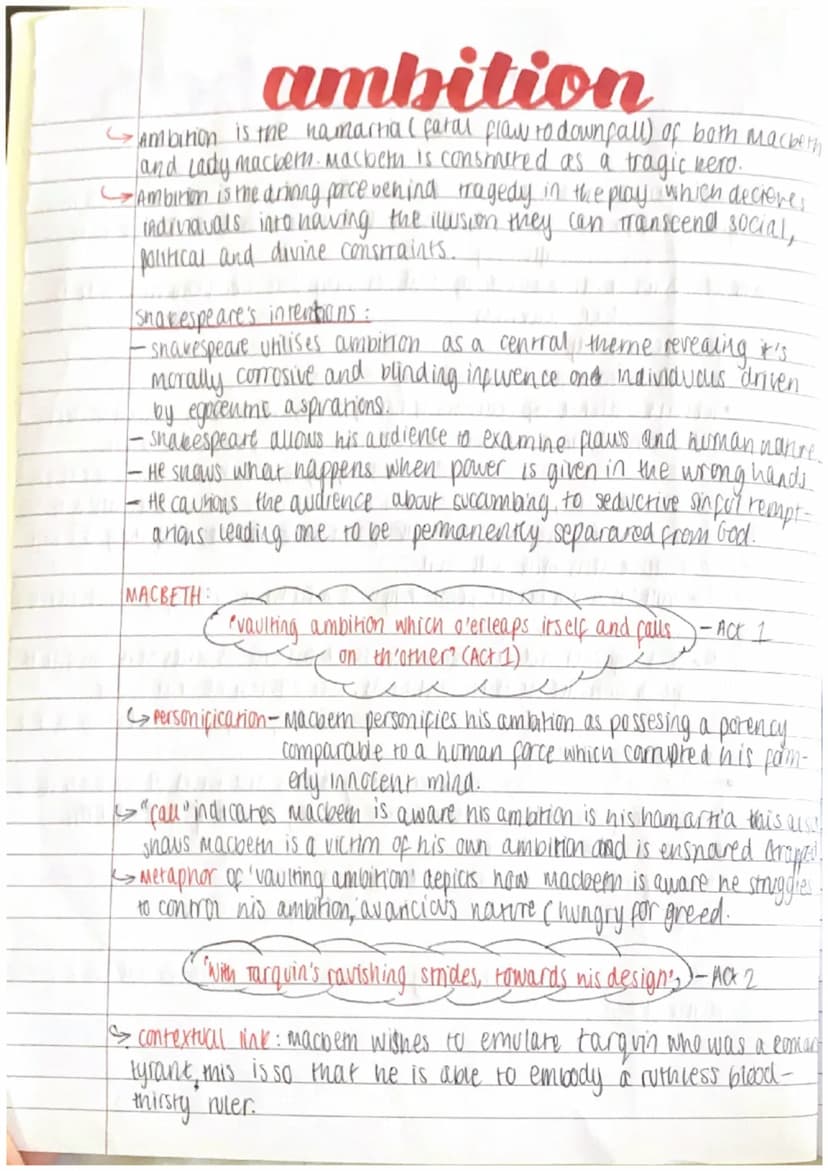 ambition
↳ Ambition is the hamartia (fatal flaw to downfall) of both Macbeth
and Lady macbeth. Macbeth is construed as a tragic hero.
↳ Ambition is the driving force behind tragedy in the play which decieves
individuals into having the illusion they can transcend social,
political and divine constraints.
Shakespeare's intentions:
- Shakespeare utilises ambition as a central theme revealing it's
morally corrosive and blinding influence on individuals driven
by egocentric aspirations.
- Shakespeare allows his audience to examine flaws and human nature.
- He shows what happens when power is given in the wrong hands
- He cautions the audience about succumbing to seductive sinful tempt-
ations leading one to be permanently separated from God.
MACBETH:
"vaulting ambition which o'erleaps itself and falls - Act 1
on th'other" (Act 1)
↳ Personification - Macbeth personifies his ambition as possesing a potency
comparable to a human force which corrupted his form-
erly innocent mind.
↳ "fall" indicates Macbeth is aware his ambition is his hamartia this also
shows Macbeth is a victim of his own ambition and is ensnared
↳ Metaphor of 'vaulting ambition' depicts how Macbeth is aware he struggles
to control his ambition, avaricious nature (hungry for greed.
"With Tarquin's ravishing strides, towards his design", - Act 2
↳ contextual link: Macbeth wishes to emulate tarquin who was a roman
tyrant, this is so that he is able to embody a ruthless blood-
thirsty ruler.